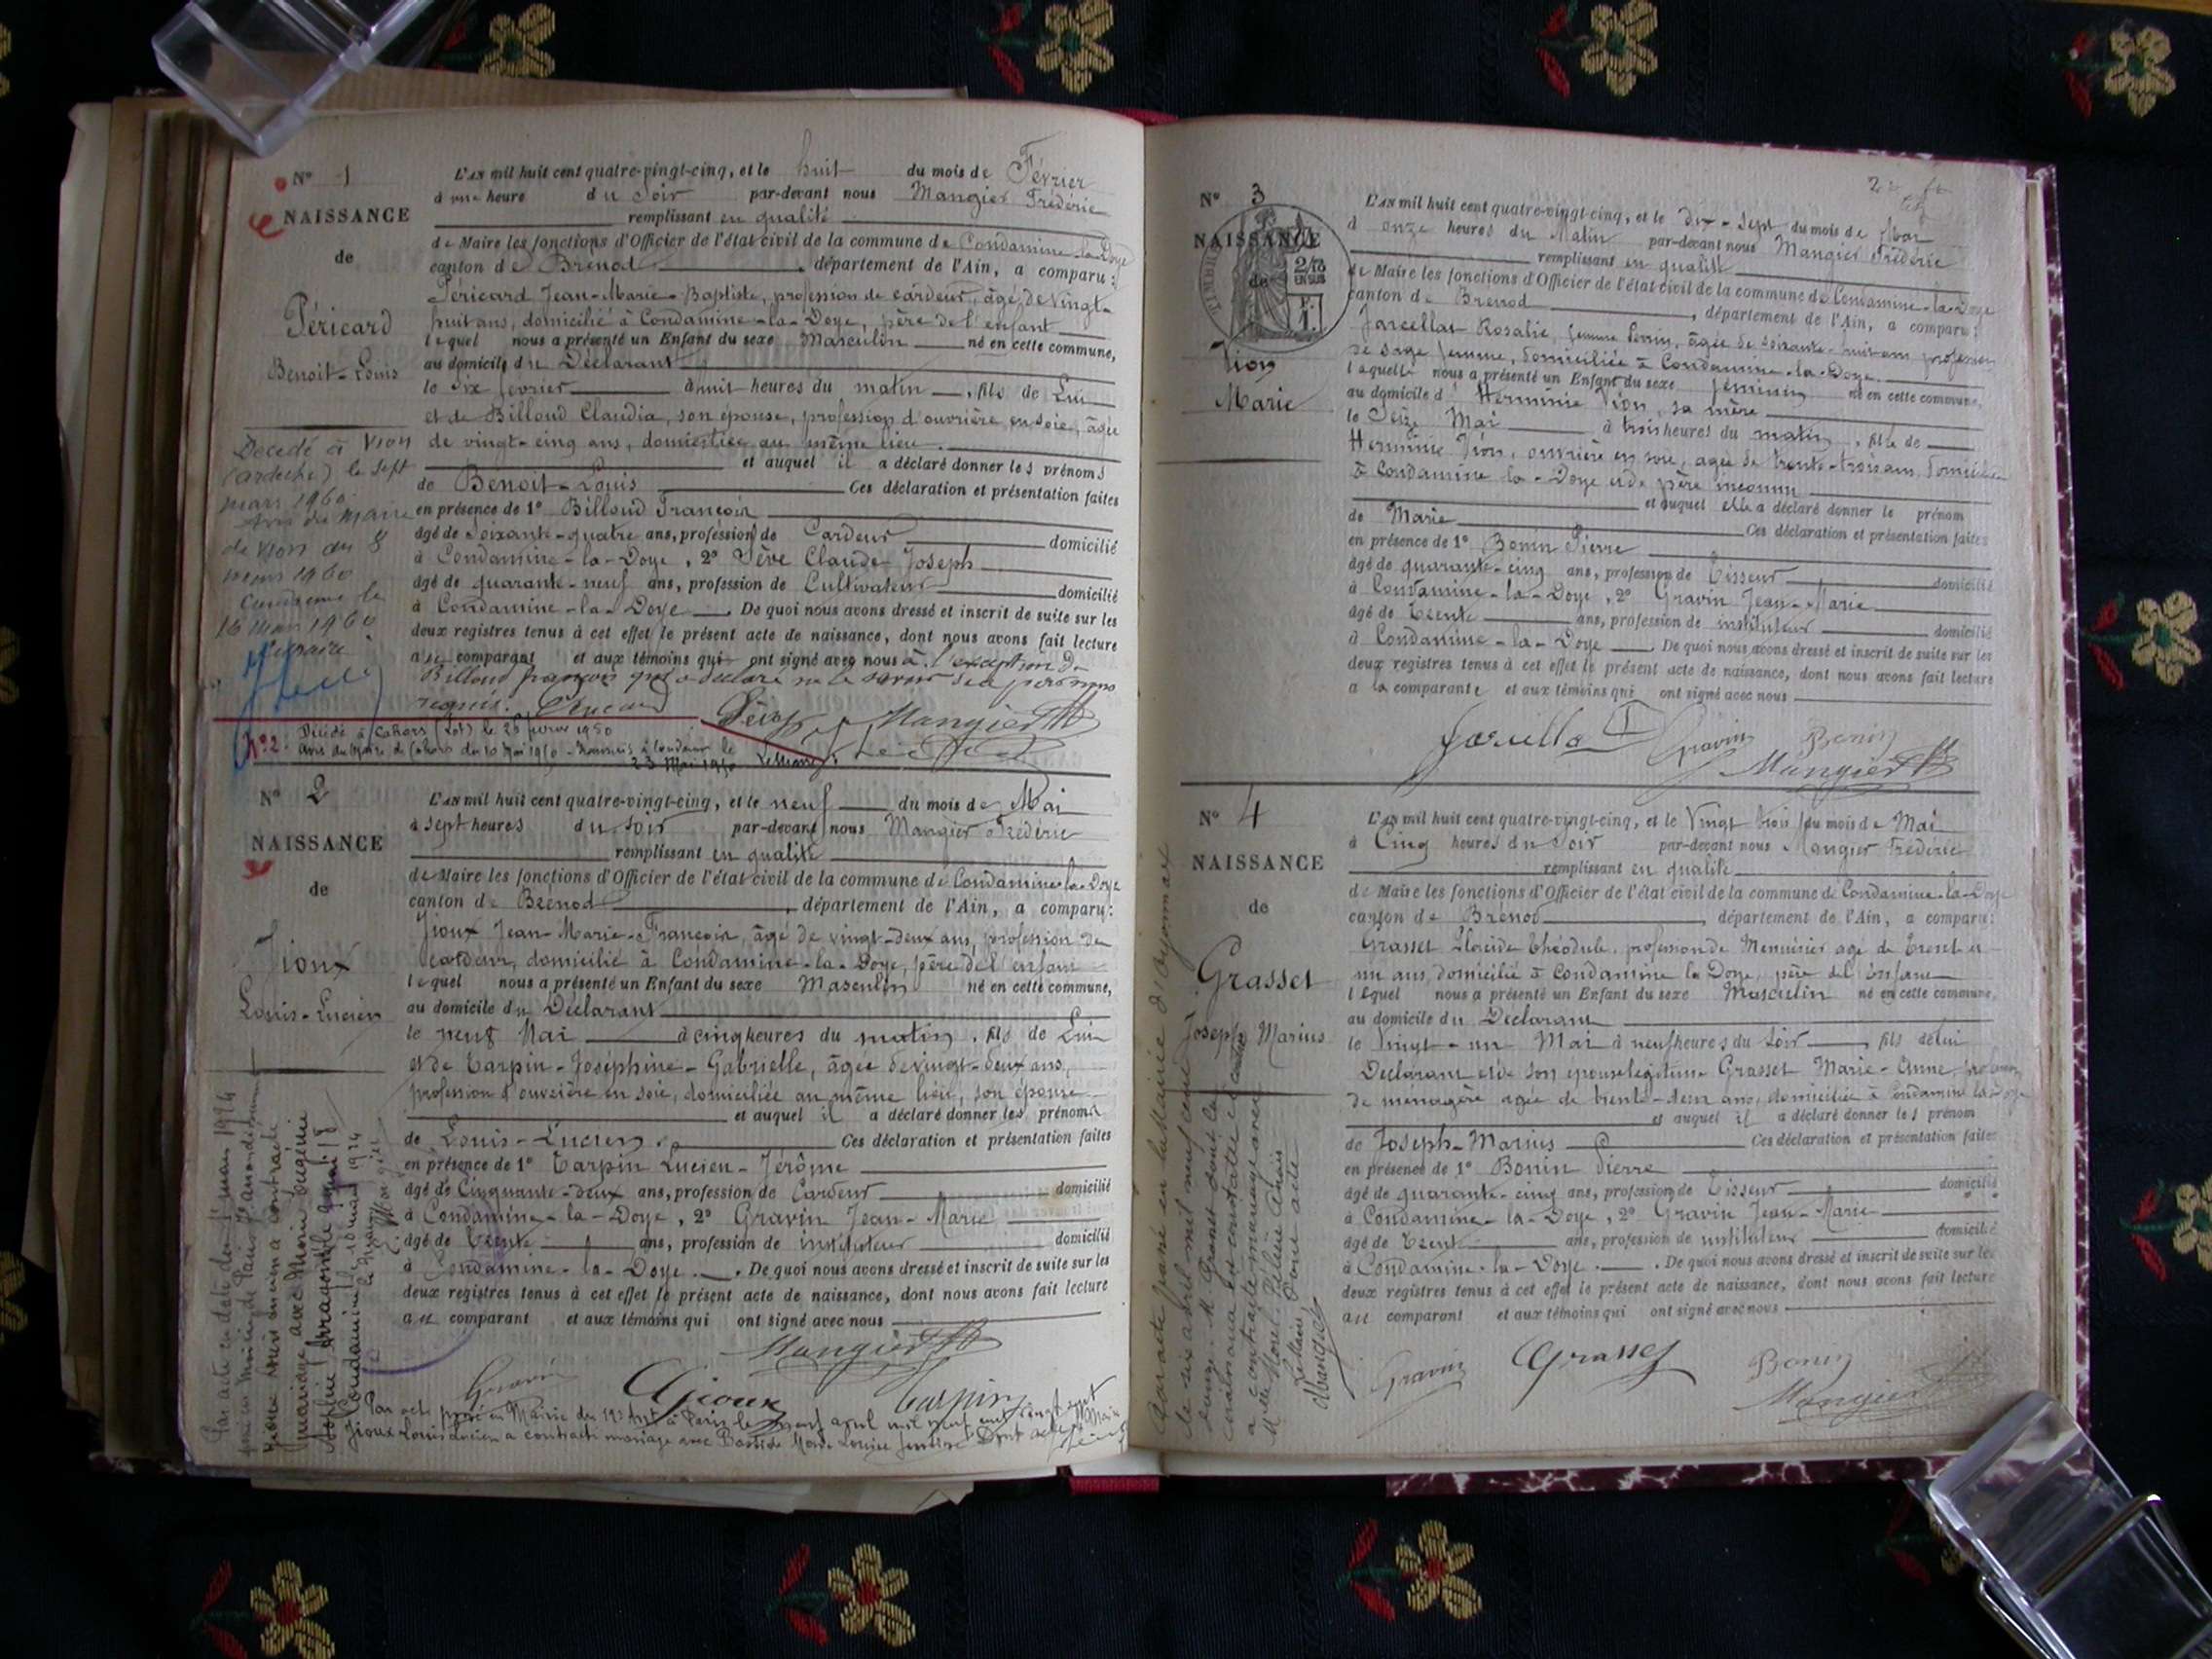 N° 1
NAISSANCE
de
Péricard
Benoit-Louis
Décédé à Vion
(ardèche) le sept
mars 1960.
Avis du Maire
de Vion du 8
mars 1960
Condamine le
16 mars 1960
L'An mil huit cent quatre-vingt-cinq, et le huit du mois de Février
à une heure du Soir par-devant nous Mangier Frédéric
remplissant en qualité
de Maire les fonctions d'Officier de l'état civil de la commune de Condamine-la-Doye
canton de Brénod, département de l'Ain, a comparu:
Péricard Jean-Marie-Baptiste, profession de cardeur, âgé de vingt-
huit ans, domicilié à Condamine-la-Doye, père de l'enfant
lequel nous a présenté un Enfant du sexe Masculin né en cette commune,
au domicile du Déclarant
le Six février à huit heures du matin, fils de Lui
et de Billoud Claudia, son épouse, profession d'ouvrière en soie, âgée
de vingt-cinq ans, domiciliée au même lieu.
et auquel il a déclaré donner les prénoms
de Benoit-Louis Ces déclaration et présentation faites
en présence de 1° Billoud François
âgé de Soixante-quatre ans, profession de Cardeur domicilié
à Condamine-la-Doye, 2° Sève Claude Joseph
âgé de quarante-neuf ans, profession de Cultivateur domicilié
à Condamine-la-Doye. De quoi nous avons dressé et inscrit de suite sur les
deux registres tenus à cet effet le présent acte de naissance, dont nous avons fait lecture
au comparant et aux témoins qui ont signé avec nous à l'exception de
Billoud françois qui a déclaré ne le savoir de ce personnes
requis. Péricard Sève Mangier
N° 2: Décédé à Cahors (Lot) le 25 février 1950
Avis du Maire de Cahors du 10 Mai 1950
23 Mai 1950
N° 2
NAISSANCE
de
Jioux
Louis-Lucien
L'An mil huit cent quatre-vingt-cinq, et le neuf du mois de Mai
à sept heures du soir par-devant nous Mangier Frédéric
remplissant en qualité
de Maire les fonctions d'Officier de l'état civil de la commune de Condamine-la-Doye
canton de Brenod, département de l'Ain, a comparu:
Jioux Jean-Marie-François, âgé de vingt-deux ans, profession de
cardeur, domicilié à Condamine-la-Doye, père de l'enfant
lequel nous a présenté un Enfant du sexe Masculin né en cette commune,
au domicile du Déclarant
le neuf Mai à cinq heures du matin, fils de Lui
et de Tarpin-Joséphine-Gabrielle, âgée de vingt-deux ans,
profession d'ouvrière en soie, domiciliée au même lieu, son épouse
et auquel il a déclaré donner les prénoms
de Louis-Lucien. Ces déclaration et présentation faites
en présence de 1° Tarpin Lucien-Jérôme
âgé de Cinquante-deux ans, profession de Cardeur domicilié
à Condamine-la-Doye, 2° Gravin Jean-Marie
âgé de Trente ans, profession de instituteur domicilié
à Condamine-la-Doye. De quoi nous avons dressé et inscrit de suite sur les
deux registres tenus à cet effet le présent acte de naissance, dont nous avons fait lecture
au comparant et aux témoins qui ont signé avec nous
Mangier
Gravin Jioux Tarpin
Par acte passé en Mairie du 12e Arrt à Paris le neuf avril mil neuf cent vingt sept
Jioux Louis Lucien a contracté mariage avec Bastide Marie Louise Dont acte
Par acte en date du mars 1914
Jioux Louis Lucien a contracté
mariage avec Morin Eugénie
Condamine le 10 mars 1914
N° 3
NAISSANCE
de
Vion
Marie
L'An mil huit cent quatre-vingt-cinq, et le dix-Sept du mois de Mai
à onze heures du Matin par-devant nous Mangier Frédéric
remplissant en qualité
de Maire les fonctions d'Officier de l'état civil de la commune de Condamine-la-Doye
canton de Brenod, département de l'Ain, a comparu:
Jarcellat Rosalie, femme Perrin, âgée de soixante-huit ans profession
de sage femme, domiciliée à Condamine-la-Doye.
laquelle nous a présenté un Enfant du sexe féminin né en cette commune,
au domicile d'Herminie Vion, sa mère
le Seize Mai à trois heures du matin, fille de
Herminie Vion, ouvrière en soie, agée de trente-trois ans, domiciliée
à Condamine-la-Doye et de père inconnu
et auquel elle a déclaré donner le prénom
de Marie Ces déclaration et présentation faites
en présence de 1° Bonin Pierre
âgé de quarante-cinq ans, profession de Tisseur domicilié
à Condamine-la-Doye, 2° Gravin Jean-Marie
âgé de Trente ans, profession de instituteur domicilié
à Condamine-la-Doye. De quoi nous avons dressé et inscrit de suite sur les
deux registres tenus à cet effet le présent acte de naissance, dont nous avons fait lecture
a la comparante et aux témoins qui ont signé avec nous
Gravin Bonin
Mangier
N° 4
NAISSANCE
de
Grasset
Joseph Marius
L'An mil huit cent quatre-vingt-cinq, et le Vingt trois du mois de Mai
à Cinq heures du Soir par-devant nous Mangier Frédéric
remplissant en qualité
de Maire les fonctions d'Officier de l'état civil de la commune de Condamine-la-Doye
canton de Brénod, département de l'Ain, a comparu:
Grasset Placide Théodule, profession de Menuisier agé de Trente et
un ans, domicilié à Condamine la Doye, père de l'Enfant
lequel nous a présenté un Enfant du sexe Masculin né en cette commune,
au domicile du Déclarant
le Vingt-un Mai à neuf heures du Soir, fils de lui
Déclarant et de son épouse légitime Grasset Marie-Anne, profession
de ménagère agée de trente-deux ans, domiciliée à Condamine la Doye
et auquel il a déclaré donner les prénom
de Joseph-Marius Ces déclaration et présentation faites
en présence de 1° Bonin Pierre
âgé de quarante-cinq ans, profession de Tisseur domicilié
à Condamine-la-Doye, 2° Gravin Jean-Marie
âgé de Trente ans, profession de instituteur domicilié
à Condamine-la-Doye. De quoi nous avons dressé et inscrit de suite sur les
deux registres tenus à cet effet le présent acte de naissance, dont nous avons fait lecture
au comparant et aux témoins qui ont signé avec nous
Gravin Grasset Bonin
Mangier
Par acte passé en la Mairie d'Oyonnax
le six avril mil neuf cent
a contracté mariage avec